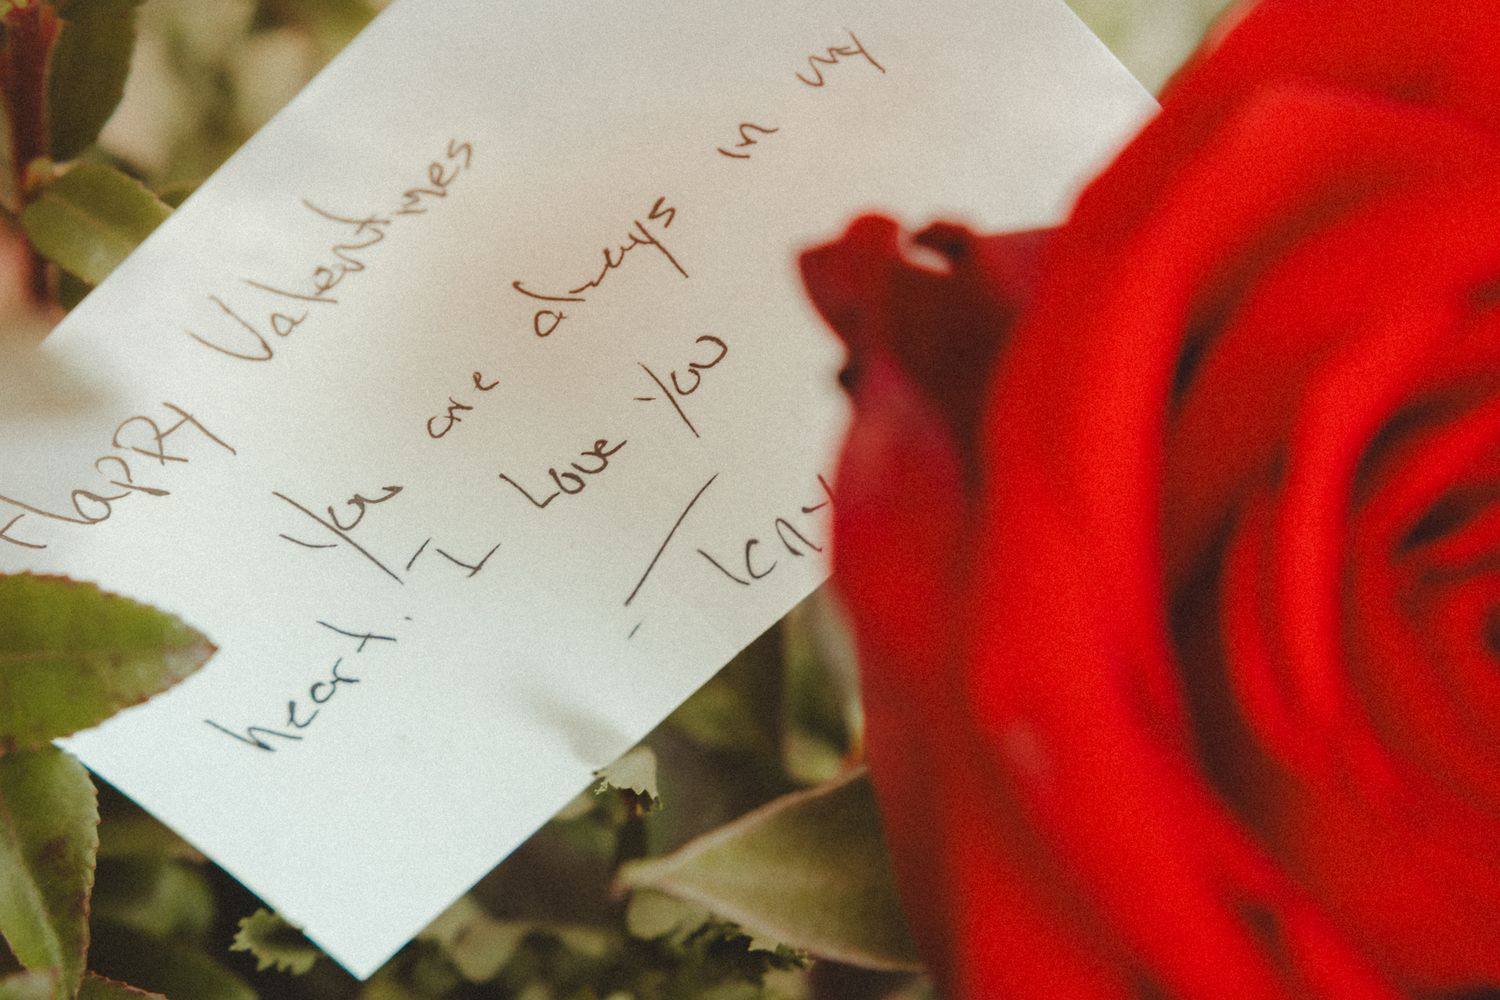 Happy Valentines
You are always in my
heart. I Love You